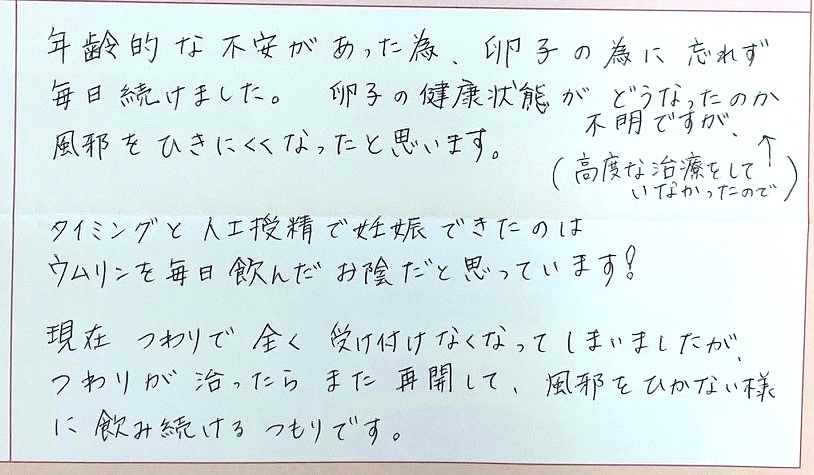 年齢的な不安があった為、卵子の為に忘れず
毎日続けました。 卵子の健康状態がどうなったのか
不明ですが、
風邪をひきにくくなったと思います。
(高度な治療をして
いなかったので)
タイミングと人工授精で妊娠できたのは
ウムリンを毎日飲んだお陰だと思っています!
現在つわりで全く受け付けなくなってしまいましたが、
つわりが治ったらまた再開して、風邪をひかない様
に飲み続けるつもりです。